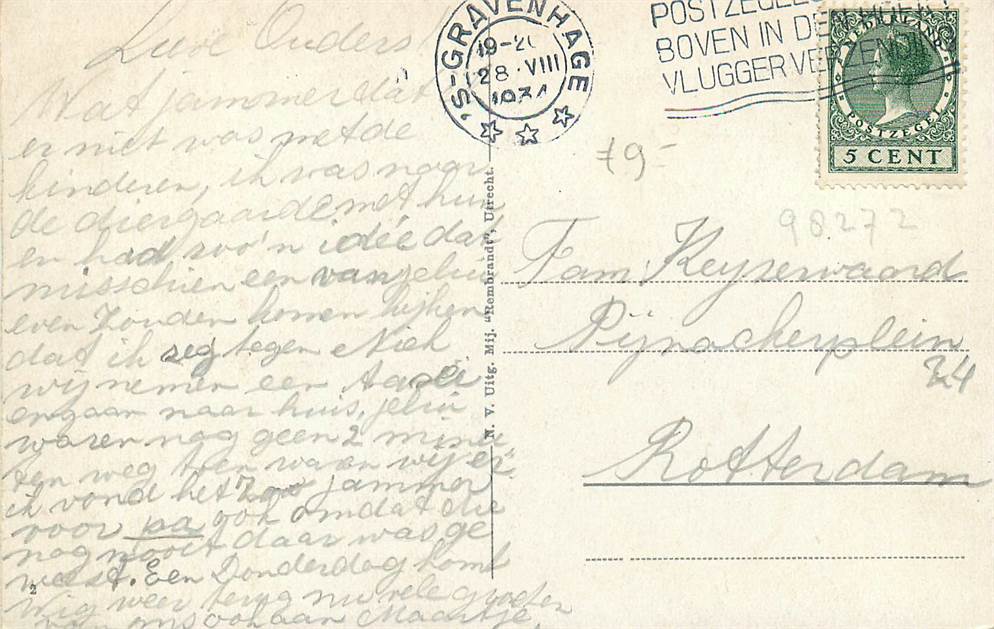 Lieve Ouders
Wat jammer dat
er niet was met de
kinderen, ik was naar
de diergaarde met hun
en had zoo'n idée dat
misschien een van jelui
even zouden komen kijken
dat ik zeg tegen Niek
wij nemen een taxi
en gaan naar huis, jelui
waren nog geen 2 minu
ten weg toen waren wij er
ik vond het zoo jammer
voor pa ook omdat die
nog nooit daar was ge
weest. Een Donderdag komt
weer terug nu vele groeten
van ons ook aan Maartje.
2
N. V. Uitg. Mij. "Rembrandt", Utrecht.
'S-GRAVENHAGE
19-20
28.VIII
1934
POSTZEGELS
BOVEN IN DEN HOEK
VLUGGER VERZENDING
NEDERLAND
POSTZEGEL
5 CENT
98272
Fam. Keyserwaard
Pijnackerplein
34
Rotterdam